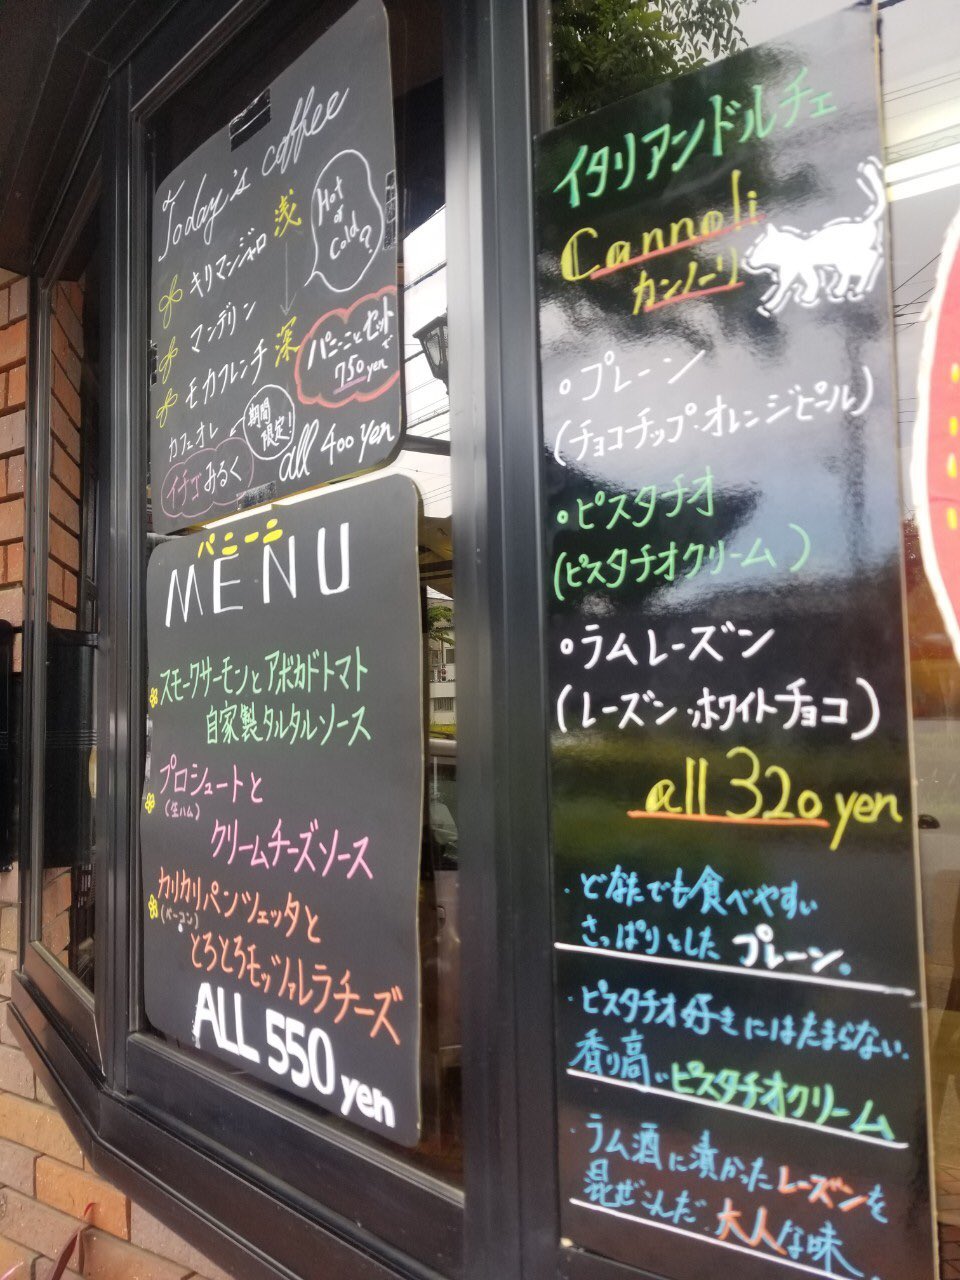 Today's coffee
Hot
or
Cold?
浅
キリマンジャロ
マンデリン
モカフレンチ
深
パニーニとセットで
750yen
カフェオレ
期間
限定!
イチゴみるく
all 400 yen
パニーニ
MENU
スモークサーモンとアボカドトマト
自家製タルタルソース
プロシュートと
(生ハム)
クリームチーズソース
カリカリパンツェッタと
(ベーコン)
とろとろモッツァレラチーズ
ALL 550 yen
イタリアンドルチェ
Cannoli
カンノーリ
・プレーン
(チョコチップ・オレンジピール)
・ピスタチオ
(ピスタチオクリーム)
・ラムレーズン
(レーズン・ホワイトチョコ)
all 320 yen
・どなたでも食べやすい
さっぱりとした プレーン。
・ピスタチオ好きにはたまらない、
香り高いピスタチオクリーム
・ラム酒に漬かったレーズンを
混ぜこんだ、大人な味